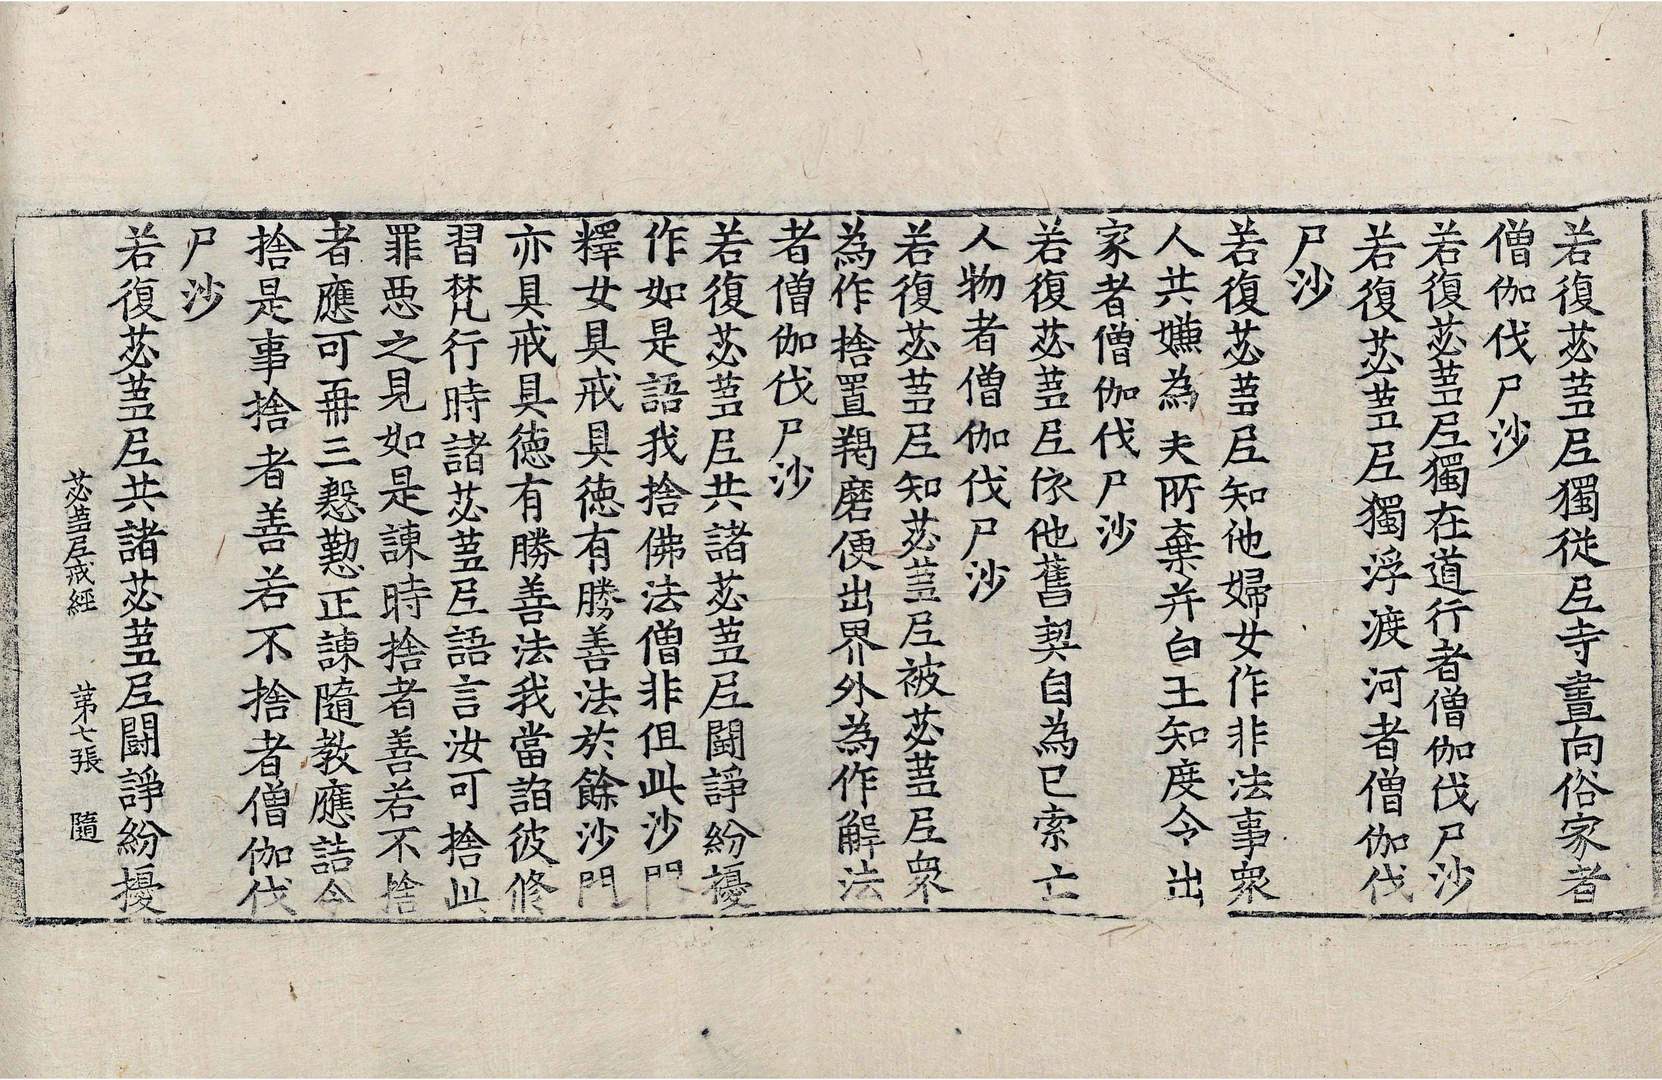 若復苾蒭尼獨從尼寺晝向俗家者
僧伽伐尸沙
若復苾蒭尼獨在道行者僧伽伐尸沙
若復苾蒭尼獨浮渡河者僧伽伐
尸沙
若復苾蒭尼知他婦女作非法事衆
人共嫌為夫所棄并白王知度令出
家者僧伽伐尸沙
若復苾蒭尼依他舊契自為已索亡
人物者僧伽伐尸沙
若復苾蒭尼知苾蒭尼被苾蒭尼衆
為作捨置羯磨便出界外為作解法
者僧伽伐尸沙
若復苾蒭尼共諸苾蒭尼鬪諍紛擾
作如是語我捨佛法僧非但此沙門
釋女具戒具德有勝善法於餘沙門
亦具戒具德有勝善法我當詣彼修
習梵行時諸苾蒭尼語言汝可捨此
罪惡之見如是諫時捨者善若不捨
者應可再三慇懃正諫隨教應詰令
捨是事捨者善若不捨者僧伽伐
尸沙
若復苾蒭尼共諸苾蒭尼鬪諍紛擾
苾蒭尼戒經　第七張　隨